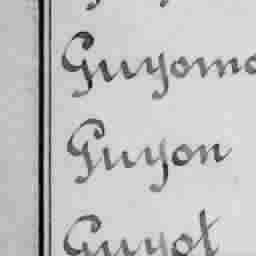 Guyomo
Guyon
Guyot